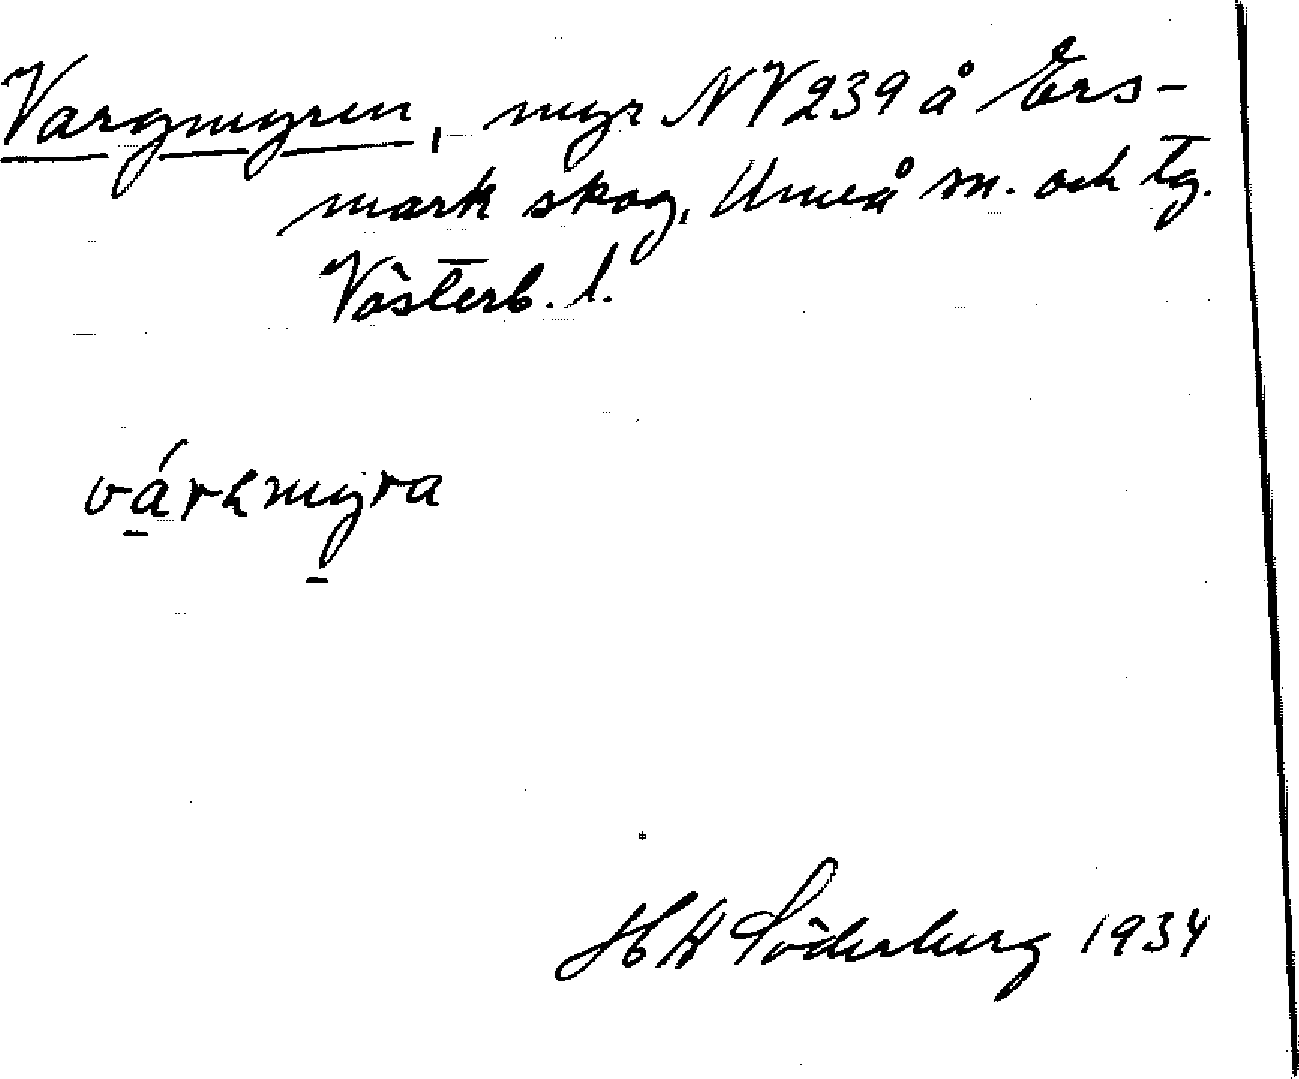 Vargmyren, myr NV239 å Ers-
mark skog, Umeå sn. och tg.
Västerb. l.
várkmyra
H W Söderberg 1934